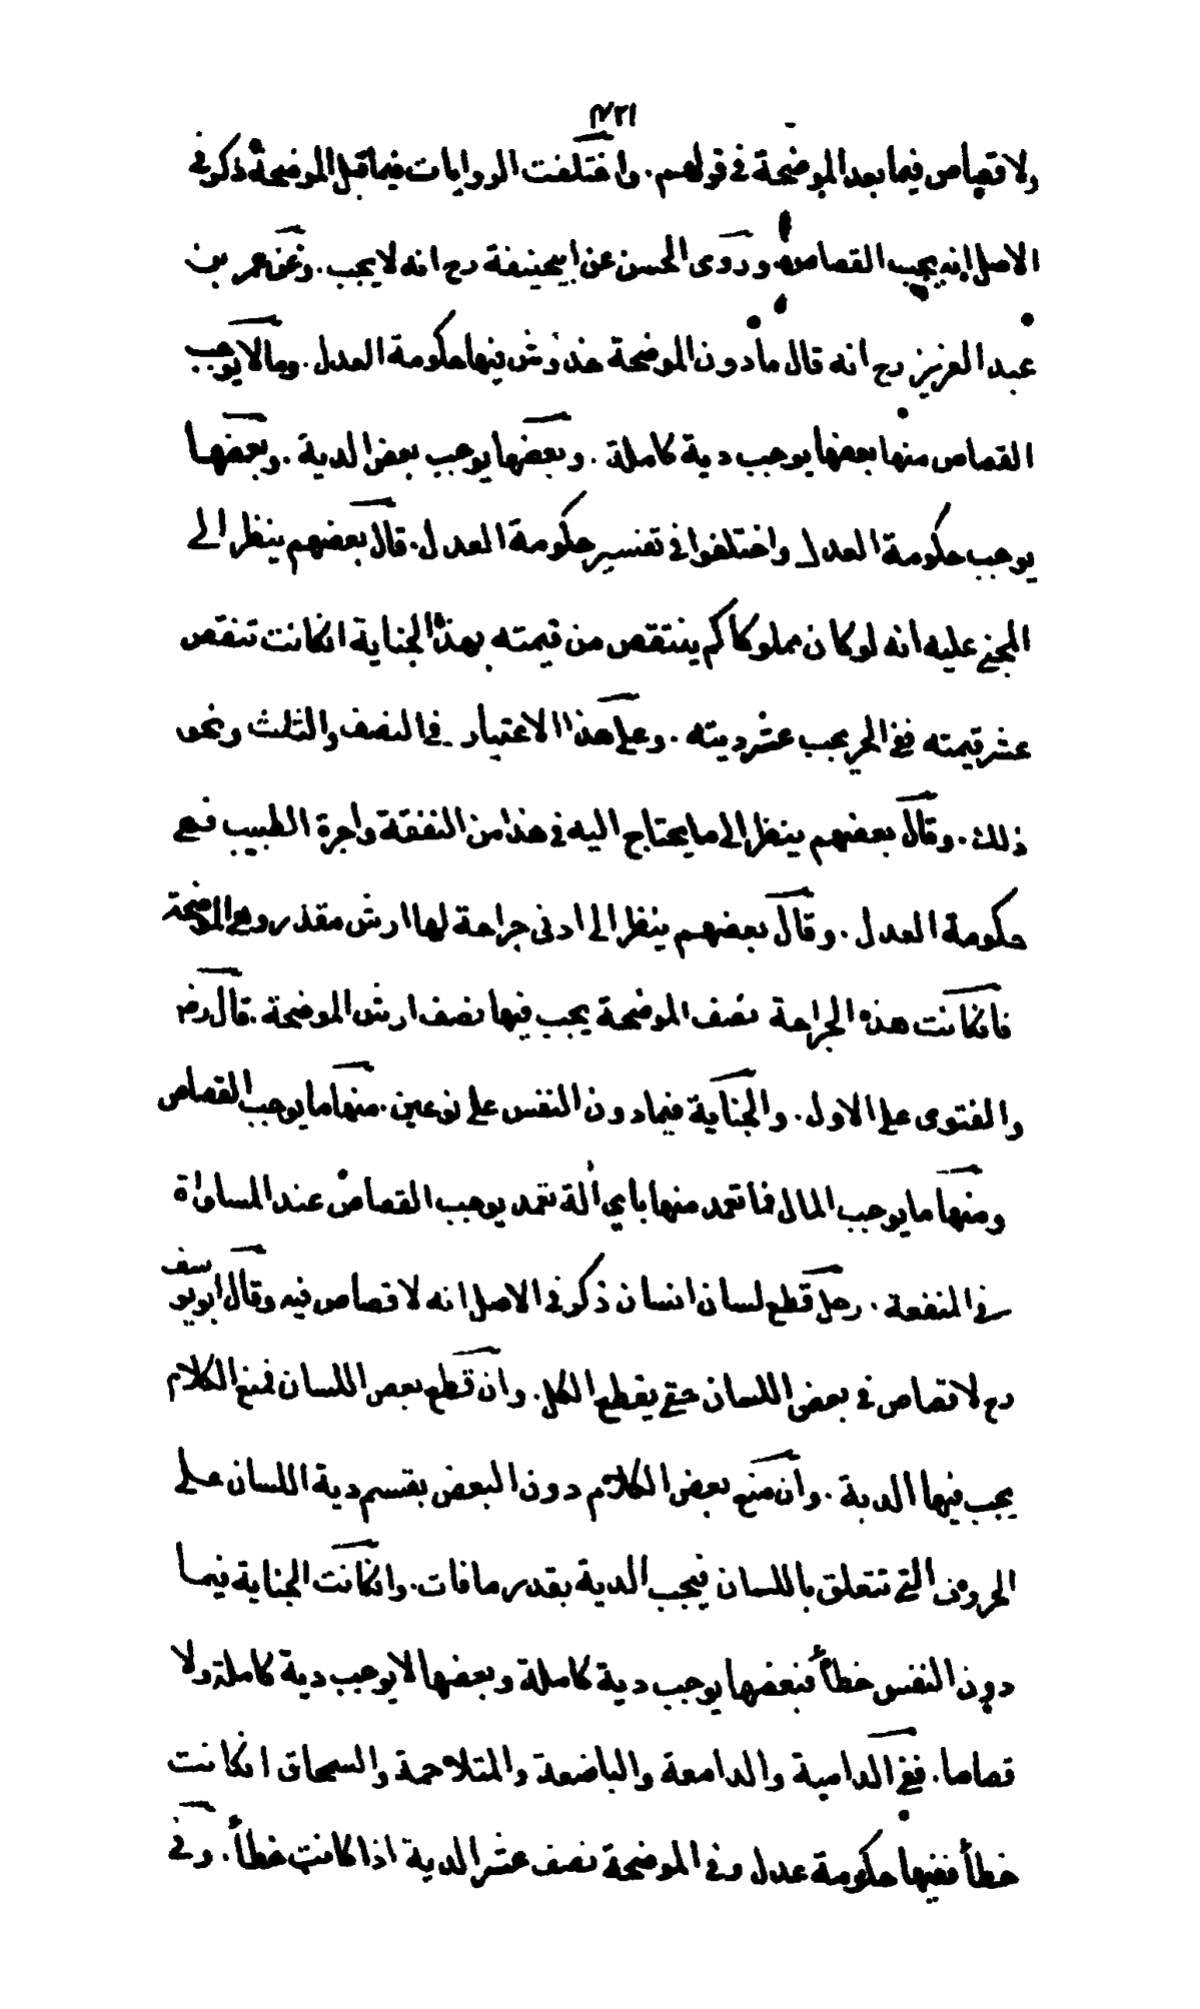 ٧٢١
ولا قصاص فيما بعد الموضحة في قولهم. واختلفت الروايات فيما قبل الموضحة ذكر في
الاصل انه يجب القصاص. وروى الحسن عن ابيحنيفة رح انه لا يجب. وعن عمر بن
عبد العزيز رح انه قال ما دون الموضحة خدوش فيها حكومة العدل. وما لا يوجب
القصاص منها بعضها يوجب دية كاملة. وبعضها يوجب بعض الدية. وبعضها
يوجب حكومة العدل واختلفوا في تفسير حكومة العدل. قال بعضهم ينظر الى
المجني عليه انه لو كان مملوكا كم ينتقص من قيمته بهذه الجناية انكانت تنقص
عشر قيمته ففي الحر يجب عشر ديته. وعلى هذا الاعتبار في النصف والثلث ونحو
ذلك. وقال بعضهم ينظر الى ما يحتاج اليه في هذا من النفقة واجرة الطبيب فهي
حكومة العدل. وقال بعضهم ينظر الى ادنى جراحة لها ارش مقدر وهي الموضحة
فانكانت هذه الجراحة نصف الموضحة يجب فيها نصف ارش الموضحة. قال رضـ
والفتوى على الاول. والجناية فيما دون النفس على نوعين. منها ما يوجب القصاص
ومنها ما يوجب المال فما تعمد منها باي آلة تعمد يوجب القصاص عند المساواة
في المنفعة. رجل قطع لسان انسان ذكر في الاصل انه لا قصاص فيه وقال ابو يوسف
رح لا قصاص في بعض اللسان حتى يقطع الكل. وان قطع بعض اللسان فمنع الكلام
يجب فيها الدية. وان منع بعض الكلام دون البعض يقسم دية اللسان على
الحروف التي تتعلق باللسان فيجب الدية بقدر ما فات. وانكانت الجناية فيما
دون النفس خطأ فبعضها يوجب دية كاملة وبعضها لا يوجب دية كاملة ولا
قصاصا. ففي الدامية والدامعة والباضعة والمتلاحمة والسمحاق انكانت
خطأ ففيها حكومة عدل وفي الموضحة نصف عشر الدية اذا كانت خطأ. وفي